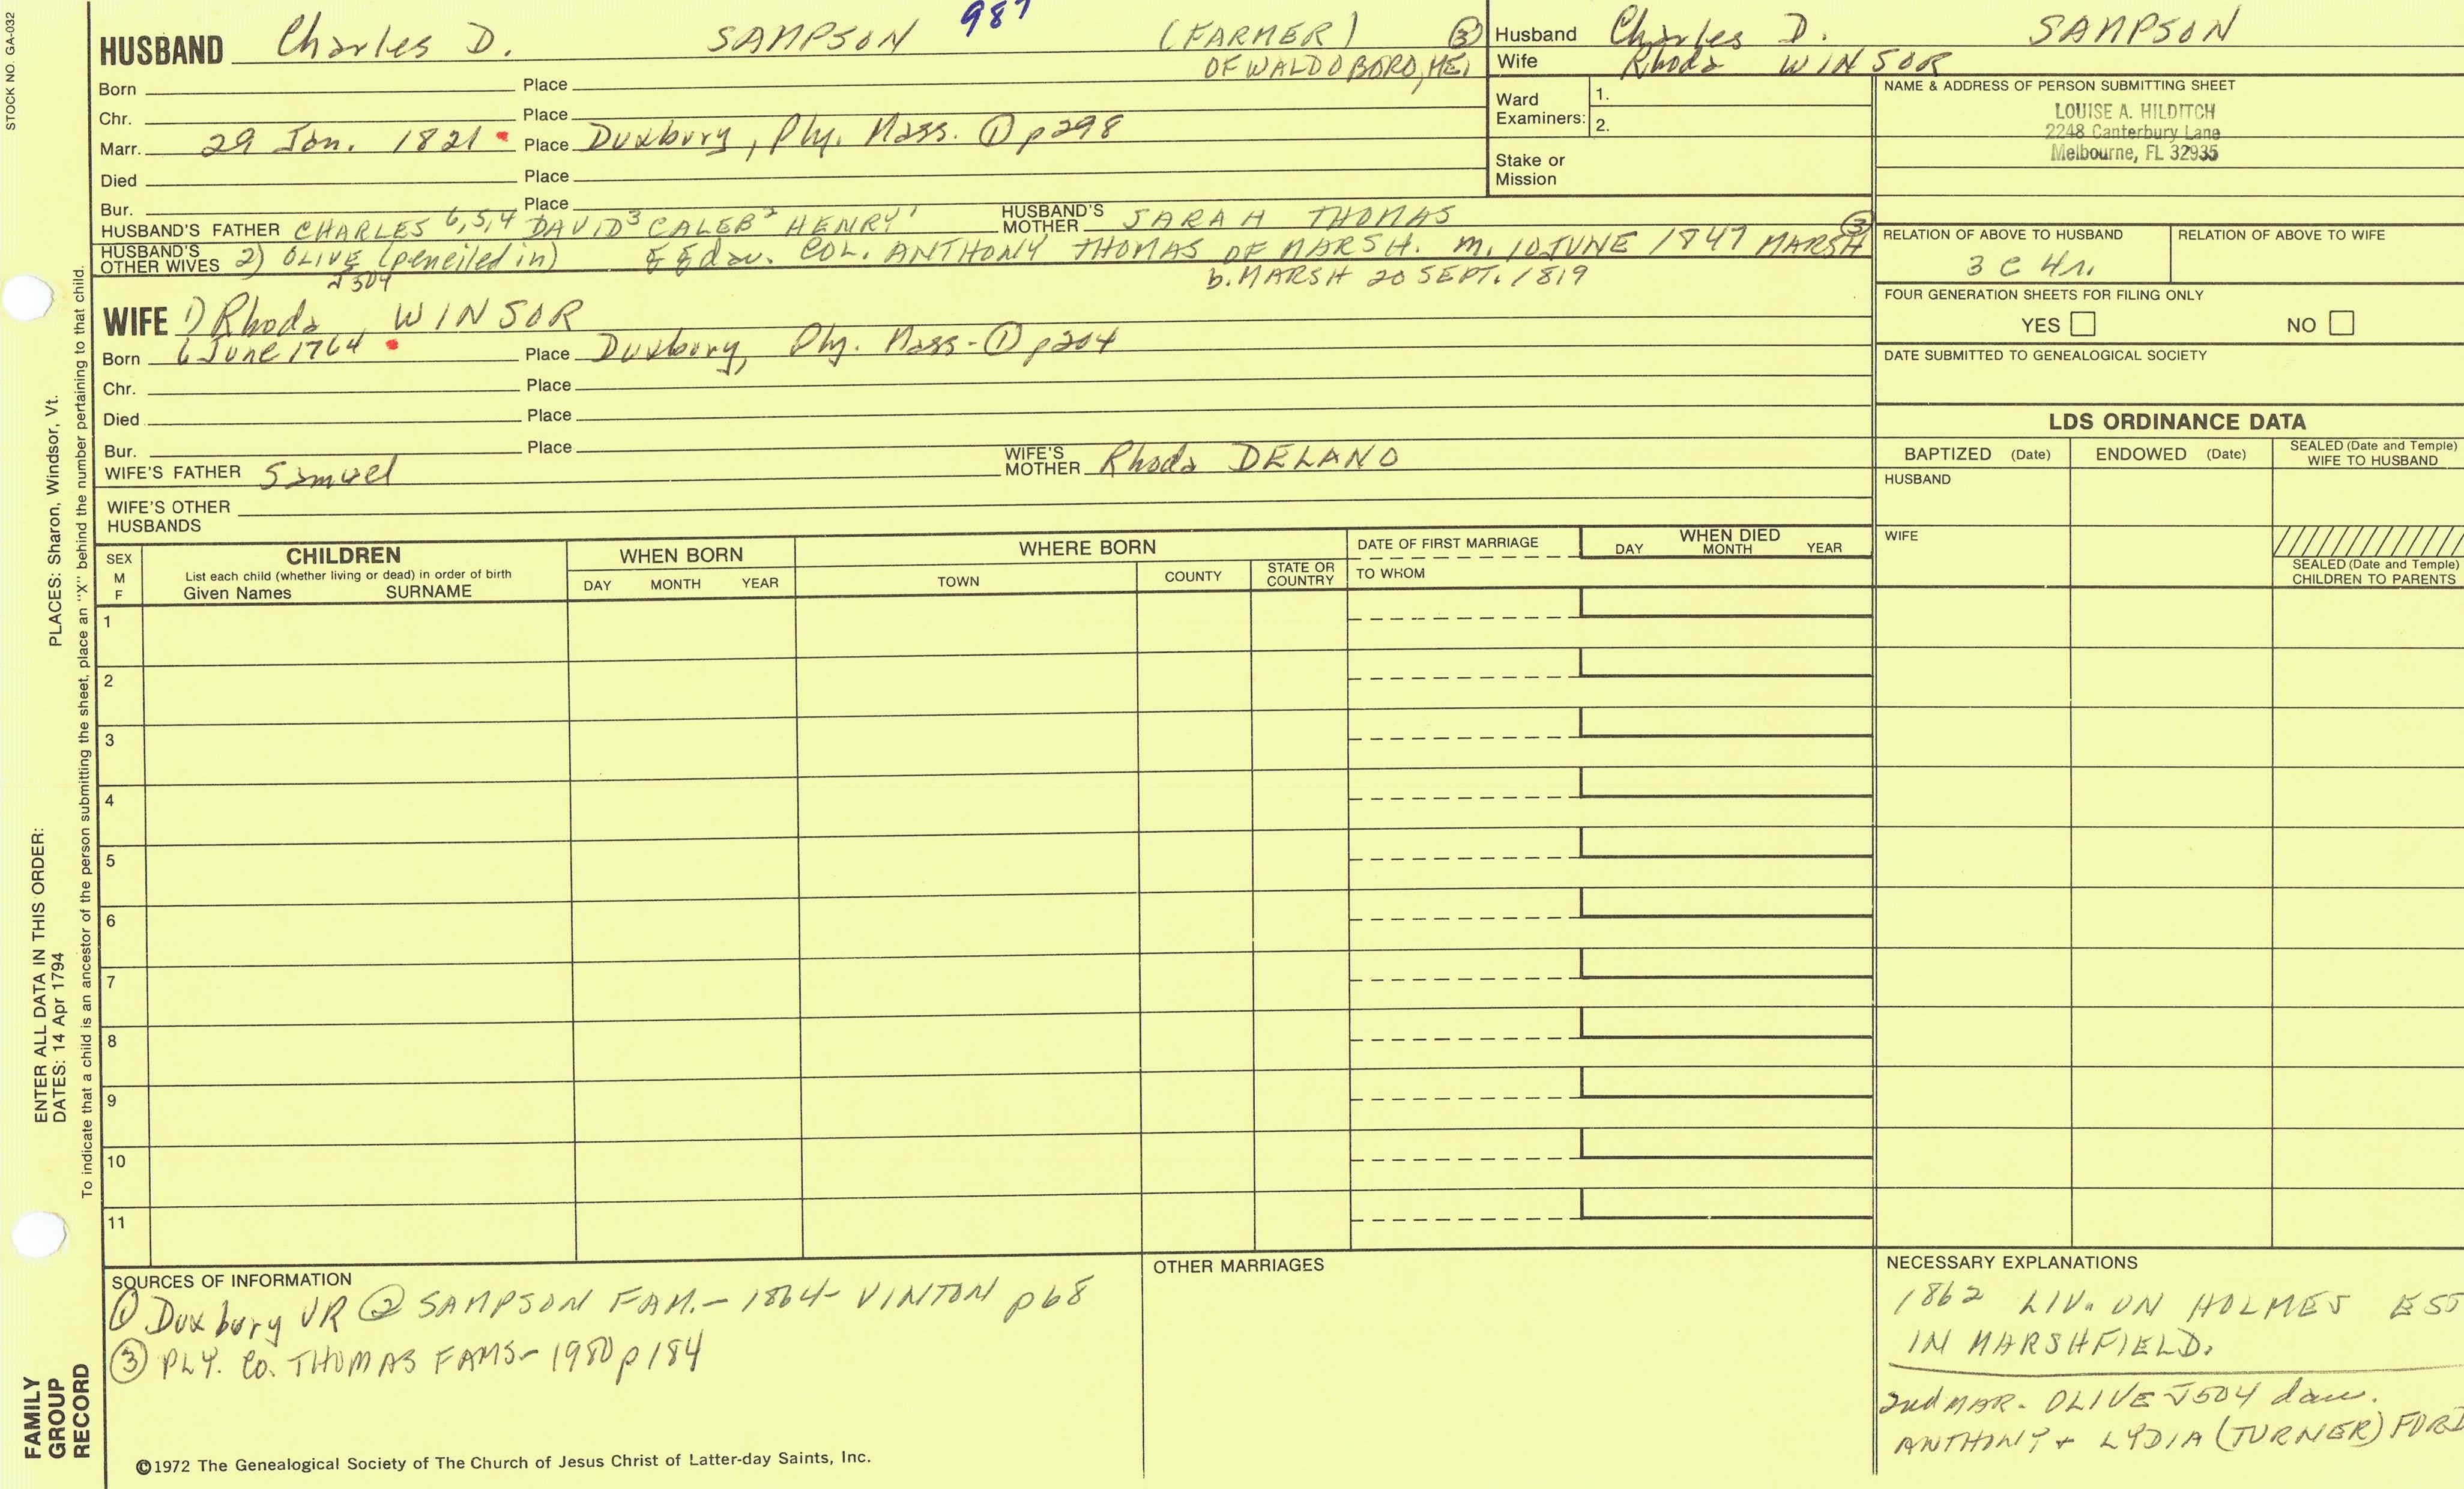 STOCK NO. GA-032
HUSBAND Charles D. SAMPSON 987 (FARMER) ③
OF WALDOBORO, ME.
Born Place
Chr. Place
Marr. 29 Jan. 1821 Place Duxbury, Ply. Mass. ① p298
Died Place
Bur. Place
HUSBAND'S FATHER CHARLES 6,5,4 DAVID3 CALEB2 HENRY1 HUSBAND'S MOTHER SARAH THOMAS
HUSBAND'S OTHER WIVES 2) OLIVE (penciled in) dau. COL. ANTHONY THOMAS OF MARSH. m. 10 JUNE 1847 MARSH ③
J504 b. MARSH 20 SEPT. 1819
WIFE 1) Rhoda WINSOR
Born 6 June 1764 Place Duxbury, Ply. Mass - ① p204
Chr. Place
Died Place
Bur. Place
WIFE'S FATHER Samuel WIFE'S MOTHER Rhoda DELANO
WIFE'S OTHER HUSBANDS
Husband Charles D. SAMPSON
Wife Rhoda WINSOR
Ward Examiners: 1.
2.
Stake or Mission
NAME & ADDRESS OF PERSON SUBMITTING SHEET
LOUISE A. HILDITCH
2248 Canterbury Lane
Melbourne, FL 32935
RELATION OF ABOVE TO HUSBAND RELATION OF ABOVE TO WIFE
3 C 4r.
FOUR GENERATION SHEETS FOR FILING ONLY
YES NO
DATE SUBMITTED TO GENEALOGICAL SOCIETY
LDS ORDINANCE DATA
BAPTIZED (Date) ENDOWED (Date) SEALED (Date and Temple) WIFE TO HUSBAND
HUSBAND
WIFE
SEALED (Date and Temple) CHILDREN TO PARENTS
SEX M F
CHILDREN
List each child (whether living or dead) in order of birth
Given Names SURNAME
WHEN BORN
DAY MONTH YEAR
WHERE BORN
TOWN COUNTY STATE OR COUNTRY
DATE OF FIRST MARRIAGE
TO WHOM
WHEN DIED
DAY MONTH YEAR
1
2
3
4
5
6
7
8
9
10
11
SOURCES OF INFORMATION
① Duxbury VR ② SAMPSON FAM. - 1864 - VINTON p68
③ PLY. Co. THOMAS FAMS - 1980 p184
©1972 The Genealogical Society of The Church of Jesus Christ of Latter-day Saints, Inc.
OTHER MARRIAGES
NECESSARY EXPLANATIONS
1862 LIV. ON HOLMES EST
IN MARSHFIELD.
2nd MAR. - OLIVE J504 dau.
ANTHONY + LYDIA (TURNER) FORD
PLACES: Sharon, Windsor, Vt.
To indicate that a child is an ancestor of the person submitting the sheet, place an "X" behind the number pertaining to that child.
ENTER ALL DATA IN THIS ORDER:
DATES: 14 Apr 1794
FAMILY
GROUP
RECORD